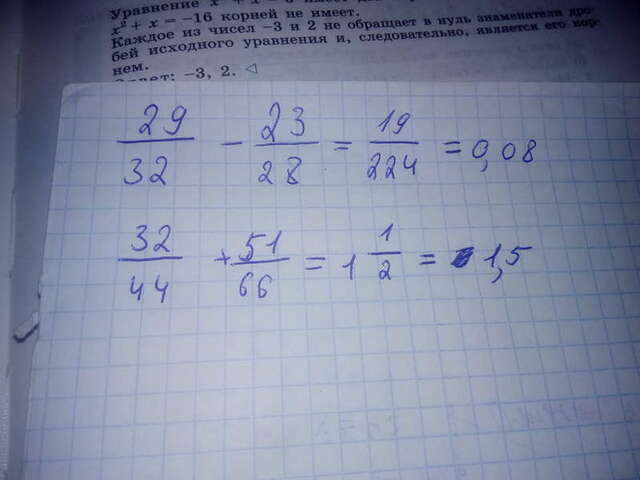 Уравнение x
x² + x = −16 корней не имеет.
Каждое из чисел −3 и 2 не обращает в нуль знаменатели дро-
бей исходного уравнения и, следовательно, является его кор-
нем.
Ответ: −3, 2. ◁
29/32 − 23/28 = 19/224 = 0,08
32/44 + 51/66 = 1 1/2 = 1,5